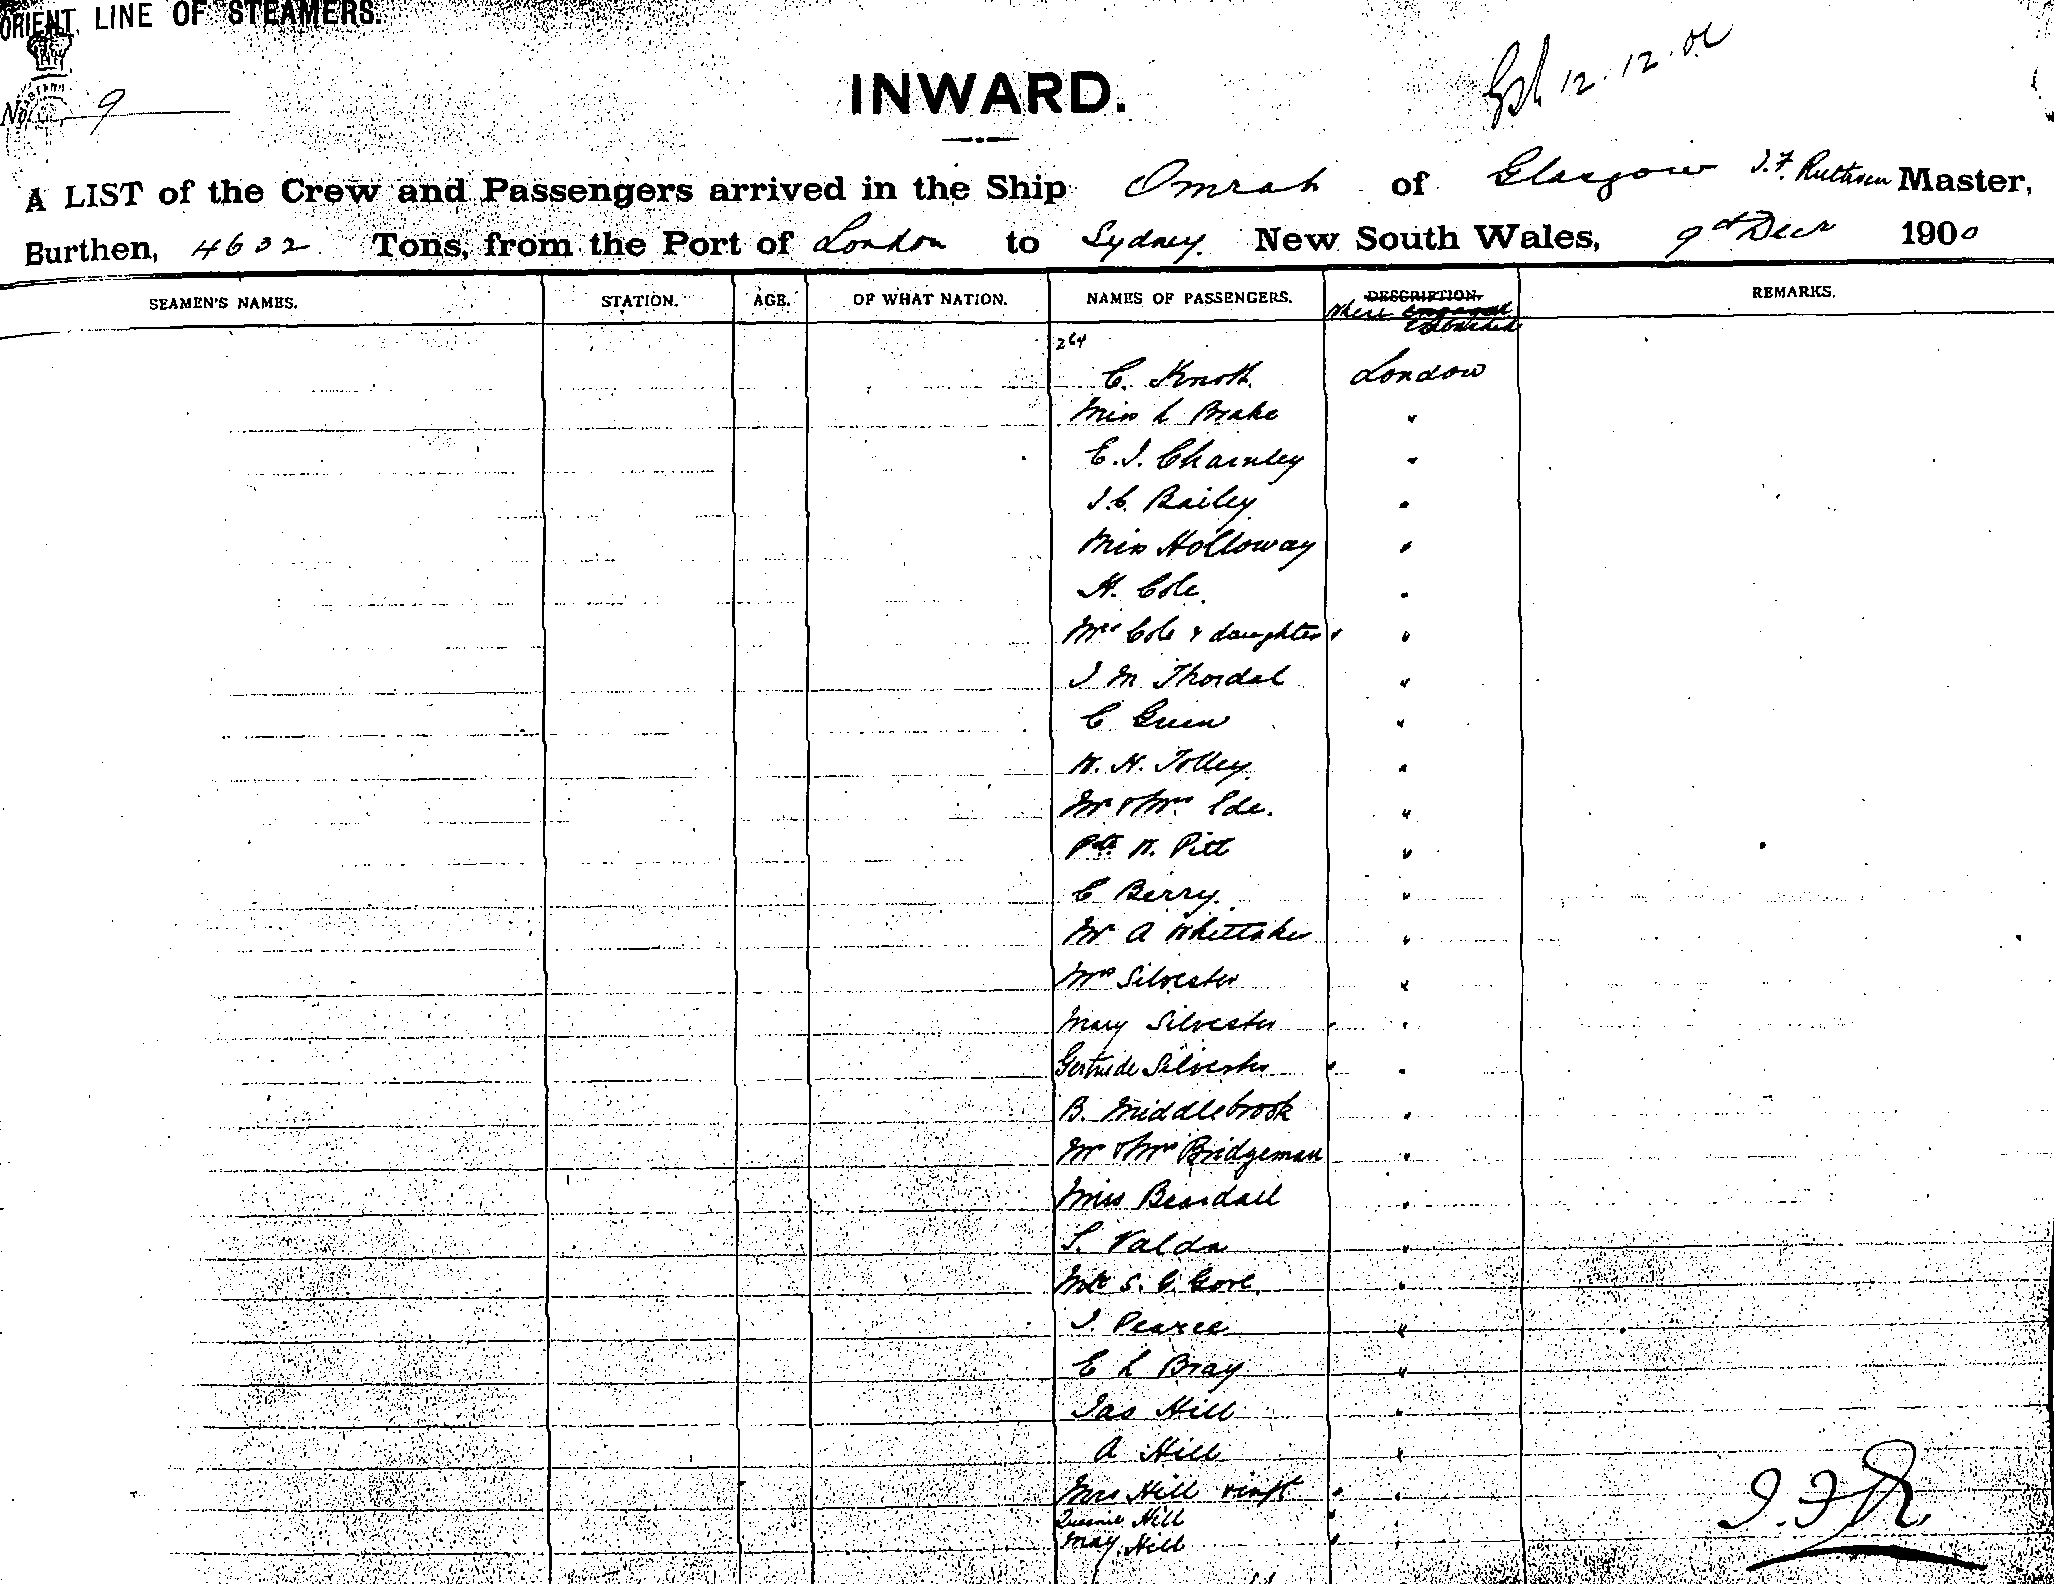 ORIENT LINE OF STEAMERS.
No. 9
12.12.00
INWARD.
A LIST of the Crew and Passengers arrived in the Ship Omrah of Glasgow J.F. Ruthven Master,
Burthen, 4632 Tons, from the Port of London to Sydney. New South Wales, 9th Decr 1900
SEAMEN'S NAMES. STATION. AGE. OF WHAT NATION. NAMES OF PASSENGERS. DESCRIPTION. REMARKS.
Where engaged
264
C. Knott. London
Miss L Brake "
E.J. Charnley "
J.C. Bailey "
Miss Holloway "
H. Cole. "
Mrs Cole & daughter "
J M Thordal "
C Green "
W. H. Tolley. "
Mr & Mrs Ede. "
Pte W. Pitt "
C Berry. "
Mr A Whittaker "
Mrs Silvester "
Mary Silvester "
Gertrude Silvester "
B. Middlebrook "
Mr & Mrs Bridgeman "
Miss Beardall "
S. Valda "
S. G. Gore "
J. Pearce "
E L Bray "
Jas Hill "
A Hill "
Mrs Hill & inft "
Hill "
May Hill "
J.F.R.